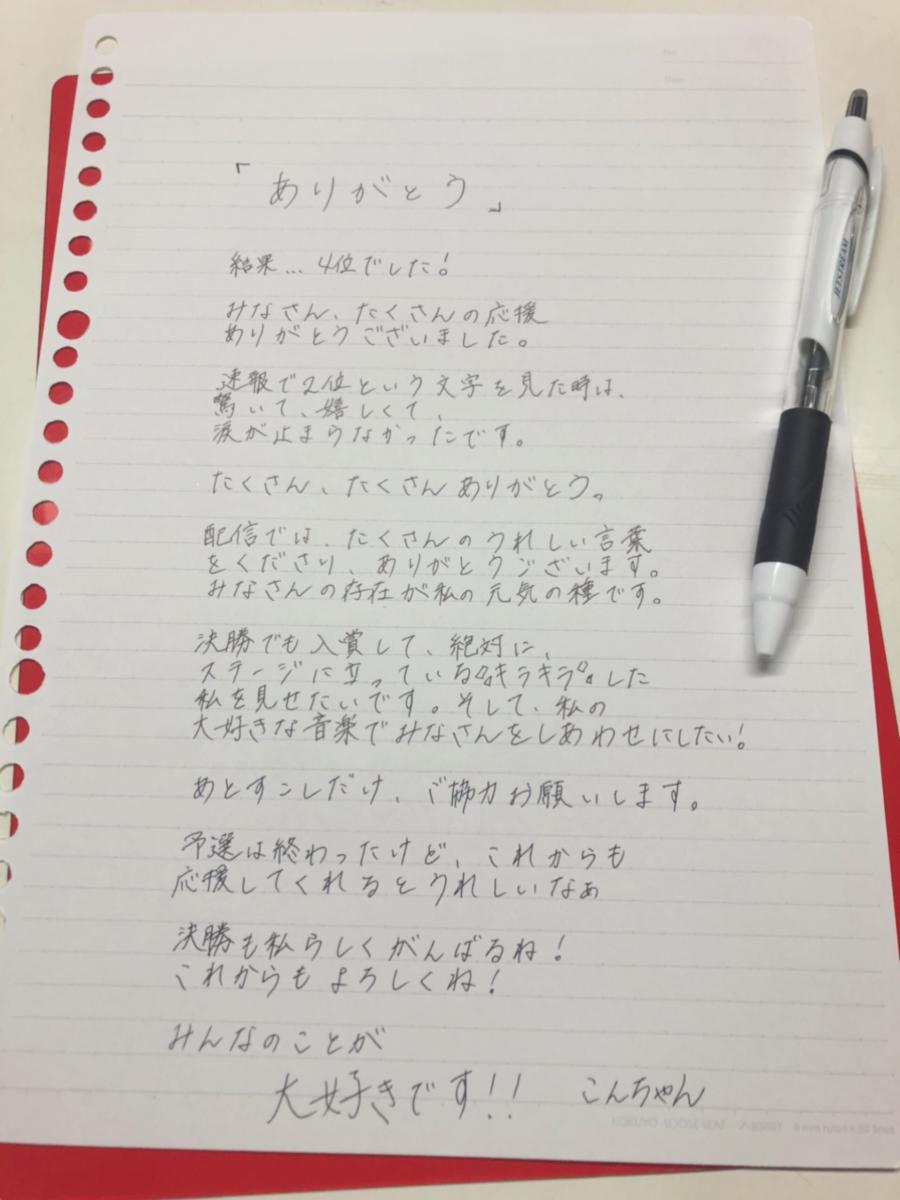 No.
Date
「ありがとう」
結果…4位でした!
みなさん、たくさんの応援
ありがとうございました。
速報で2位という文字を見た時は、
驚いて、嬉しくて、
涙が止まらなかったです。
たくさん、たくさんありがとう。
配信では、たくさんのうれしい言葉
をくださり、ありがとうございます。
みなさんの存在が私の元気の種です。
決勝でも入賞して、絶対に、
ステージに立っているキラキラした
私を見せたいです。そして、私の
大好きな音楽でみなさんをしあわせにしたい!
あとすこしだけ、ご協力お願いします。
予選は終わったけど、これからも
応援してくれるとうれしいなぁ
決勝も私らしくがんばるね!
これからもよろしくね!
みんなのことが
大好きです!! こんちゃん
KOKUYO LOOSE-LEAF
JETSTREAM